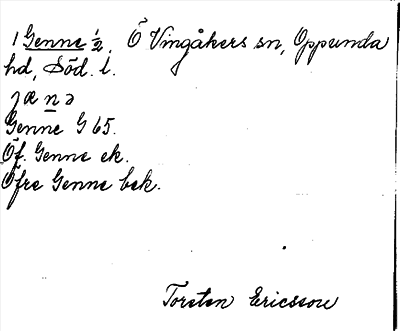 1 Genne ½. Ö Vingåkers sn, Oppunda
hd, Söd. l.
jænə
Genne G 65.
Öf. Genne ek.
Öfre Genne bek.
Torsten Ericsson